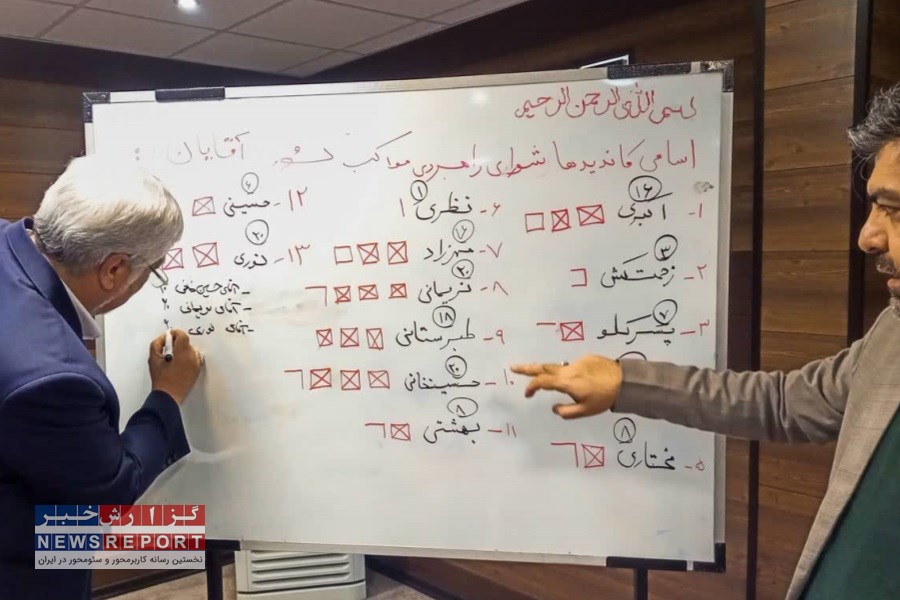 بسم الله الرحمن الرحیم
اسامی کاندیدها شورای راهبردی مواکب آقایان :
۱- اکبری ۱۶
۲- زحمتکش ۳
۳- ۷
۵- مختاری ۸
۶- نظری ۱
۷- مهرزاد ۱۶
۸- نریمانی ۲۰
۹- طبرستانی ۱۸
۱۰- حسینخانی ۲۰
۱۱- بهشتی ۸
۱۲- حسینی ۶
۱۳- نوری ۲۰
- آقای حسین‌خانی ۲۰
- آقای نریمانی ۲۰
- آقای نوری
گزارش خبر
NEWSREPORT
نخستین رسانه کاربرمحور و سئومحور در ایران